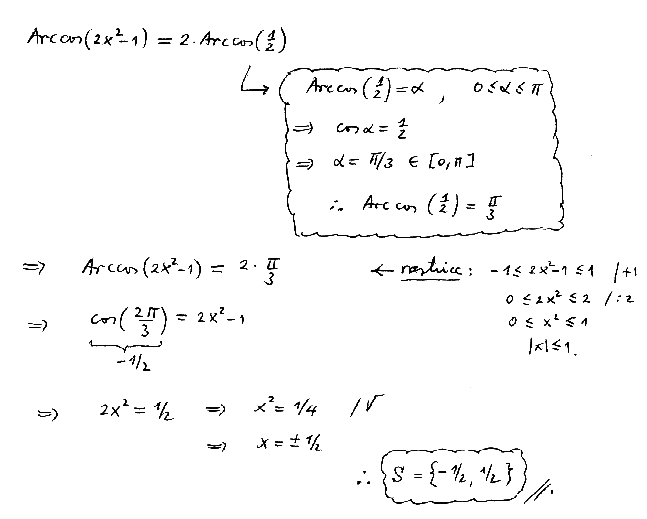 Arccos(2x²-1) = 2·Arccos(1/2)
Arccos(1/2) = α , 0 ≤ α ≤ π
⇒ cos α = 1/2
⇒ α = π/3 ∈ [0,π]
∴ Arccos(1/2) = π/3
⇒ Arccos(2x²-1) = 2·π/3
← restrice: -1 ≤ 2x²-1 ≤ 1 /+1
0 ≤ 2x² ≤ 2 /:2
0 ≤ x² ≤ 1
|x| ≤ 1.
⇒ cos(2π/3) = 2x²-1
-1/2
⇒ 2x² = 1/2 ⇒ x² = 1/4 /√
⇒ x = ± 1/2
∴ S = {-1/2, 1/2} //.